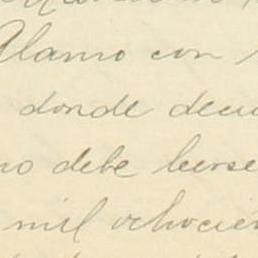 Alamo con
donde deci
no debe leerse
mil ochocien